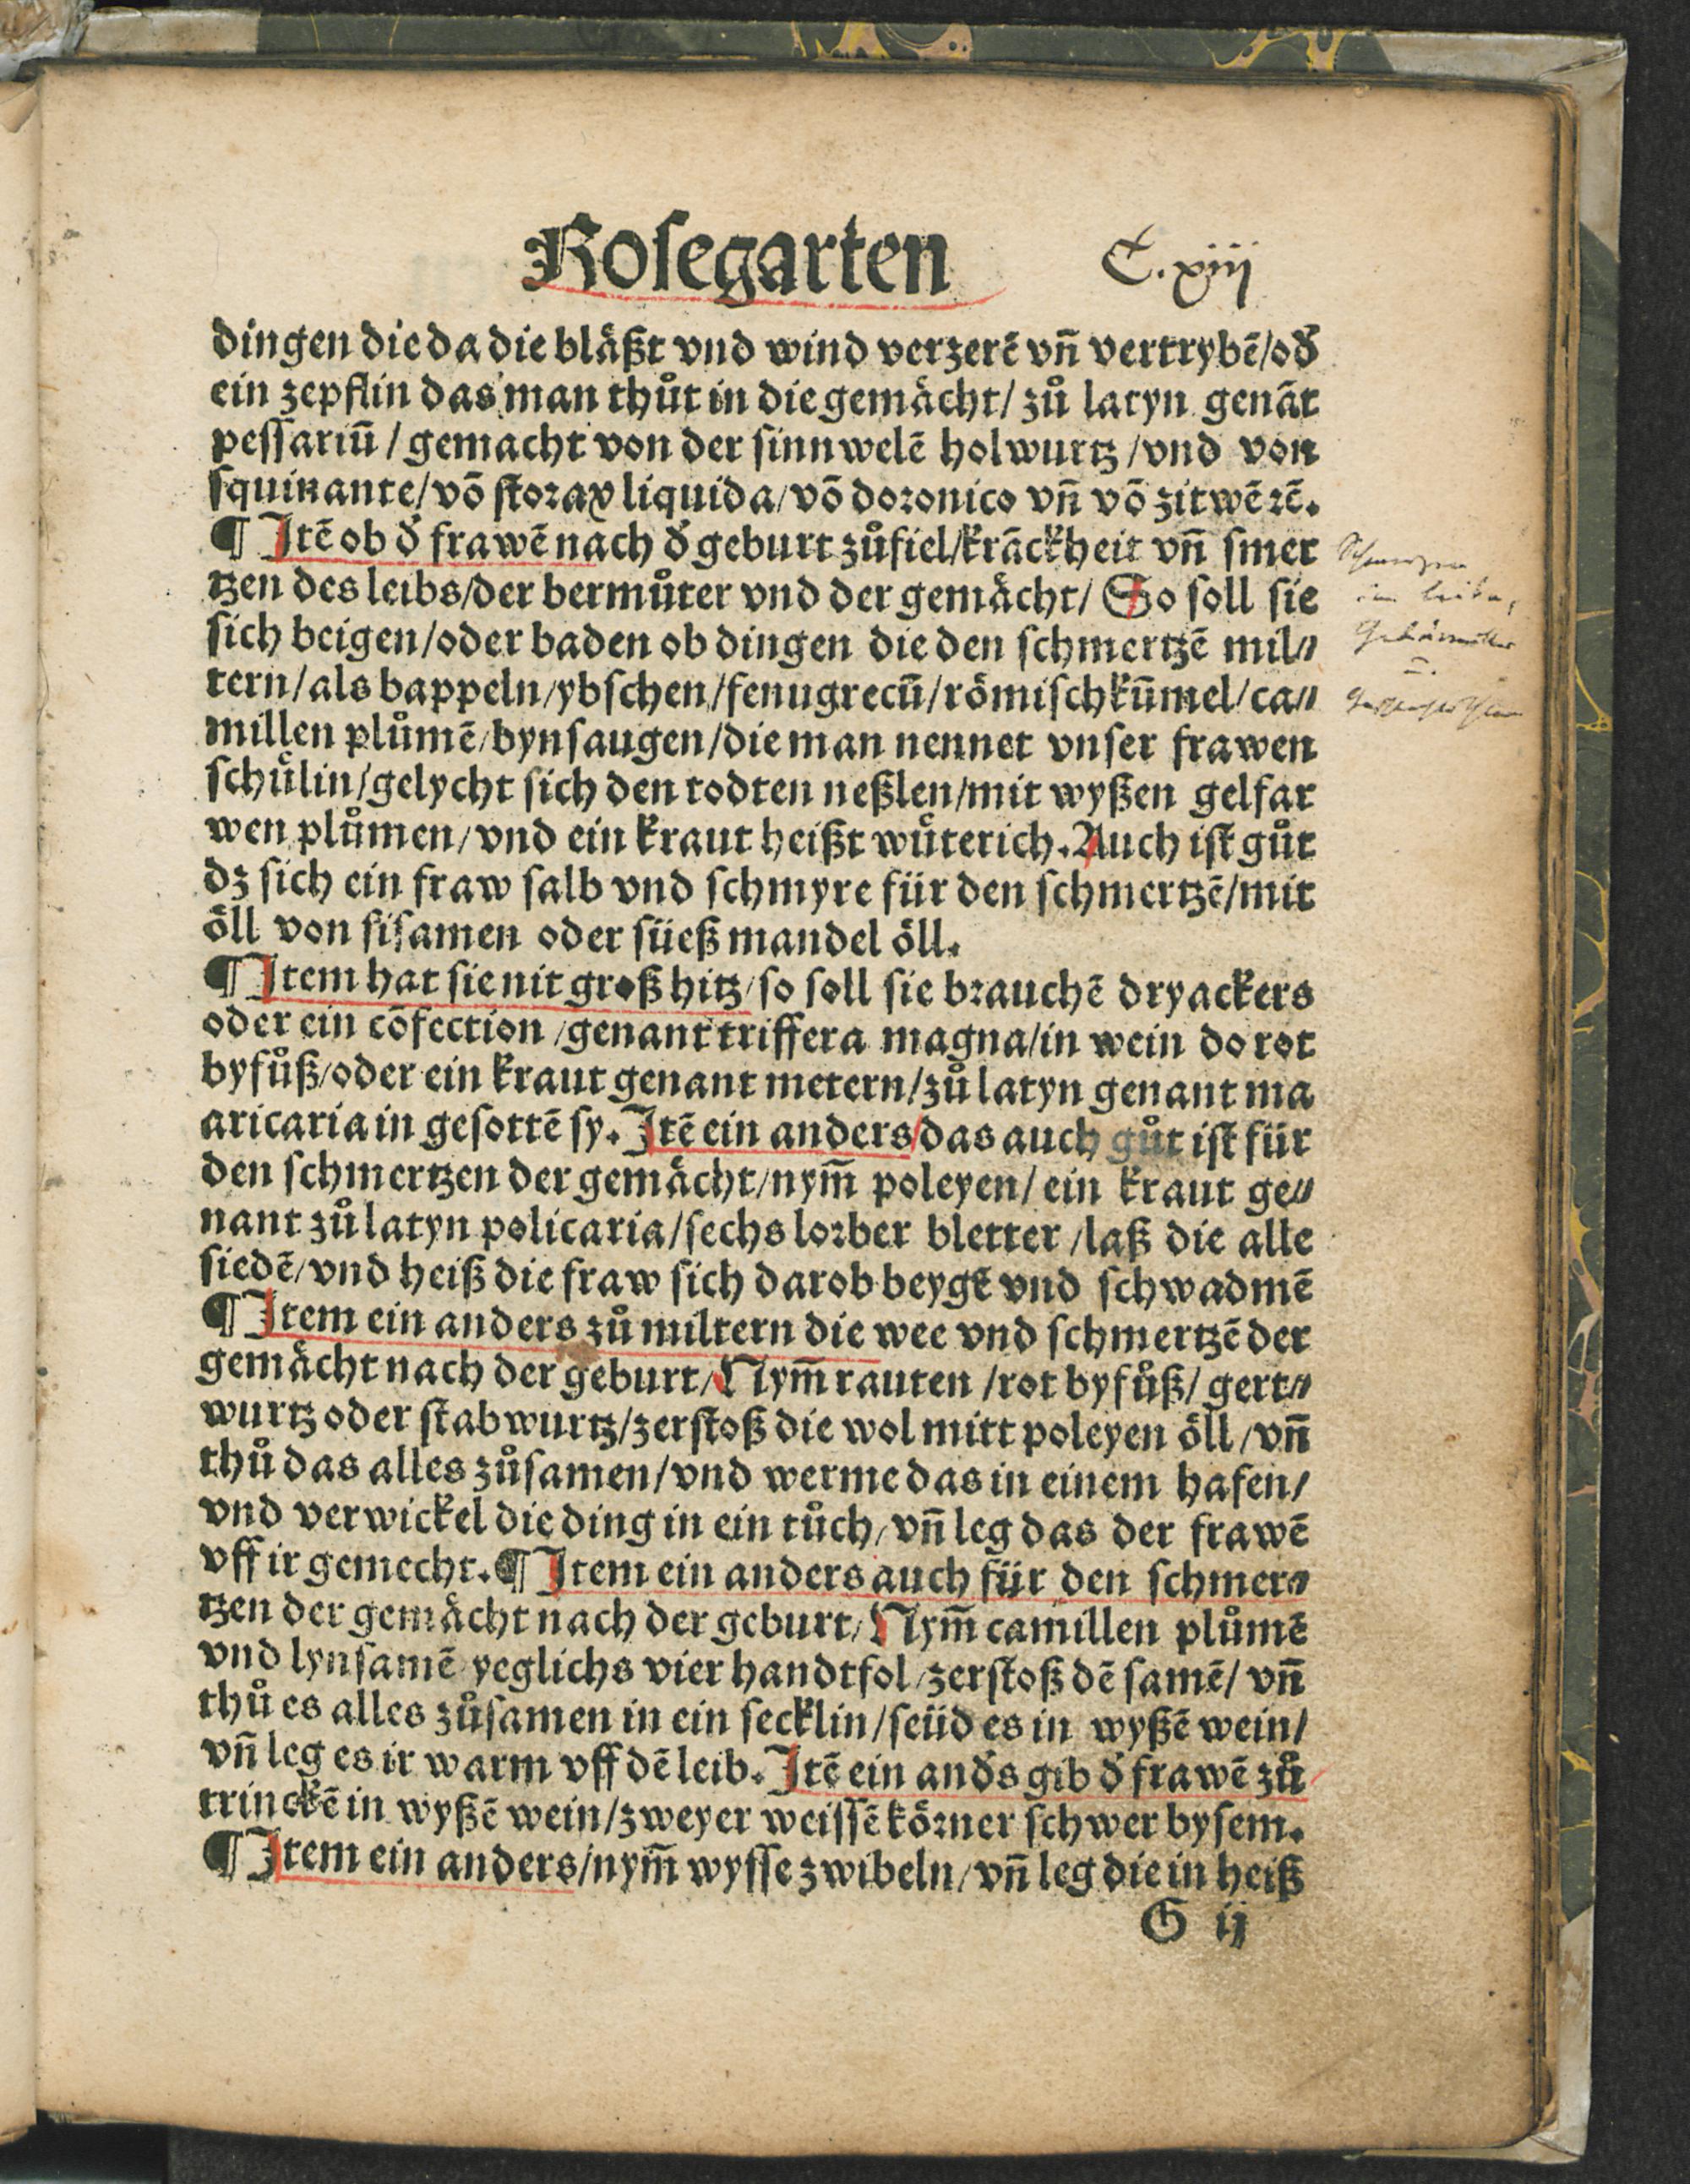 Rosegarten
C.xiij
dingen die da die bläßt vnd wind verzerē vñ vertrybē/oð
ein zepflin das man thůt in die gemächt/ zů latyn genāt
pessariū / gemacht von der sinnwelē holwurtz /vnd von
squinante/vō storax liquida/vō doronico vñ vō zitwērē.
¶ Itē ob ð frawē nach ð geburt zůfiel/krāckheit vñ smer
tzen des leibs/der bermůter vnd der gemächt/ So soll sie
sich beigen/oder baden ob dingen die den schmertzē mil⸗
tern/als bappeln/ybschen/fenugrecū/römisch kūmel/ca⸗
millen plůmē/bynsaugen/die man nennet vnser frawen
schůlin/gelycht sich den todten neßlen/mit wyßen gelfar
wen plůmen/vnd ein kraut heißt wůterich. Auch ist gůt
dz sich ein fraw salb vnd schmyre für den schmertzē/mit
öll von sisamen oder süeß mandel öll.
¶ Item hat sie nit groß hitz/so soll sie brauchē dryackers
oder ein cōfection /genant triffera magna/in wein do rot
byfůß/oder ein kraut genant metern/zů latyn genant ma
aricaria in gesottē sy. Itē ein anders/das auch gůt ist für
den schmertzen der gemächt/nym̄ poleyen/ ein kraut ge⸗
nant zů latyn policaria/sechs lorber bletter /laß die alle
siedē/vnd heiß die fraw sich darob beygē vnd schwadmē
¶ Item ein anders zů miltern die wee vnd schmertzē der
gemächt nach der geburt/Nym̄ rauten /rot byfůß/ gert⸗
wurtz oder stabwurtz/zerstoß die wol mitt poleyen öll /vñ
thů das alles zůsamen/vnd werme das in einem hafen/
vnd verwickel die ding in ein tůch/vñ leg das der frawē
vff ir gemecht. ¶ Item ein anders auch für den schmer⸗
tzen der gemächt nach der geburt/Nym̄ camillen plůmē
vnd lynsamē yeglichs vier handtfol/zerstoß dē samē/ vñ
thů es alles zůsamen in ein secklin/seüd es in wyßē wein/
vñ leg es ir warm vff dē leib. Itē ein anðs gib ð frawē zů
trinckē in wyßē wein/zweyer weissē körner schwer bysem.
¶ Item ein anders/nym̄ wysse zwibeln/vñ leg die in heiß
G ij
Schmerzen
im Leibe,
Gebärmutter